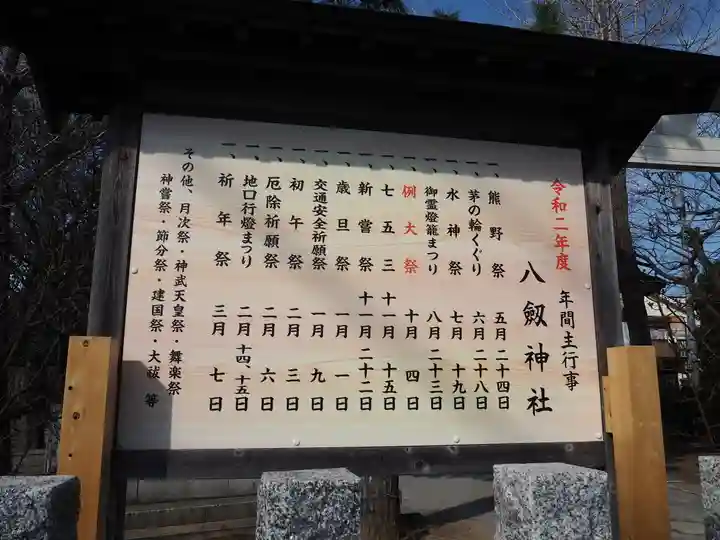 令和二年度
年間主行事
八劔神社
一、熊野祭 五月二十四日
一、茅の輪くぐり 六月二十八日
一、水神祭 七月十九日
一、御霊燈籠まつり 八月二十三日
一、例大祭 十月四日
一、七五三 十一月十五日
一、新嘗祭 十一月二十二日
一、歳旦祭 一月一日
一、交通安全祈願祭 一月九日
一、初午祭 二月三日
一、厄除祈願祭 二月六日
一、地口行燈まつり 二月十四、十五日
一、祈年祭 三月七日
その他、月次祭・神武天皇祭・舞楽祭
神嘗祭・節分祭・建国祭・大祓 等